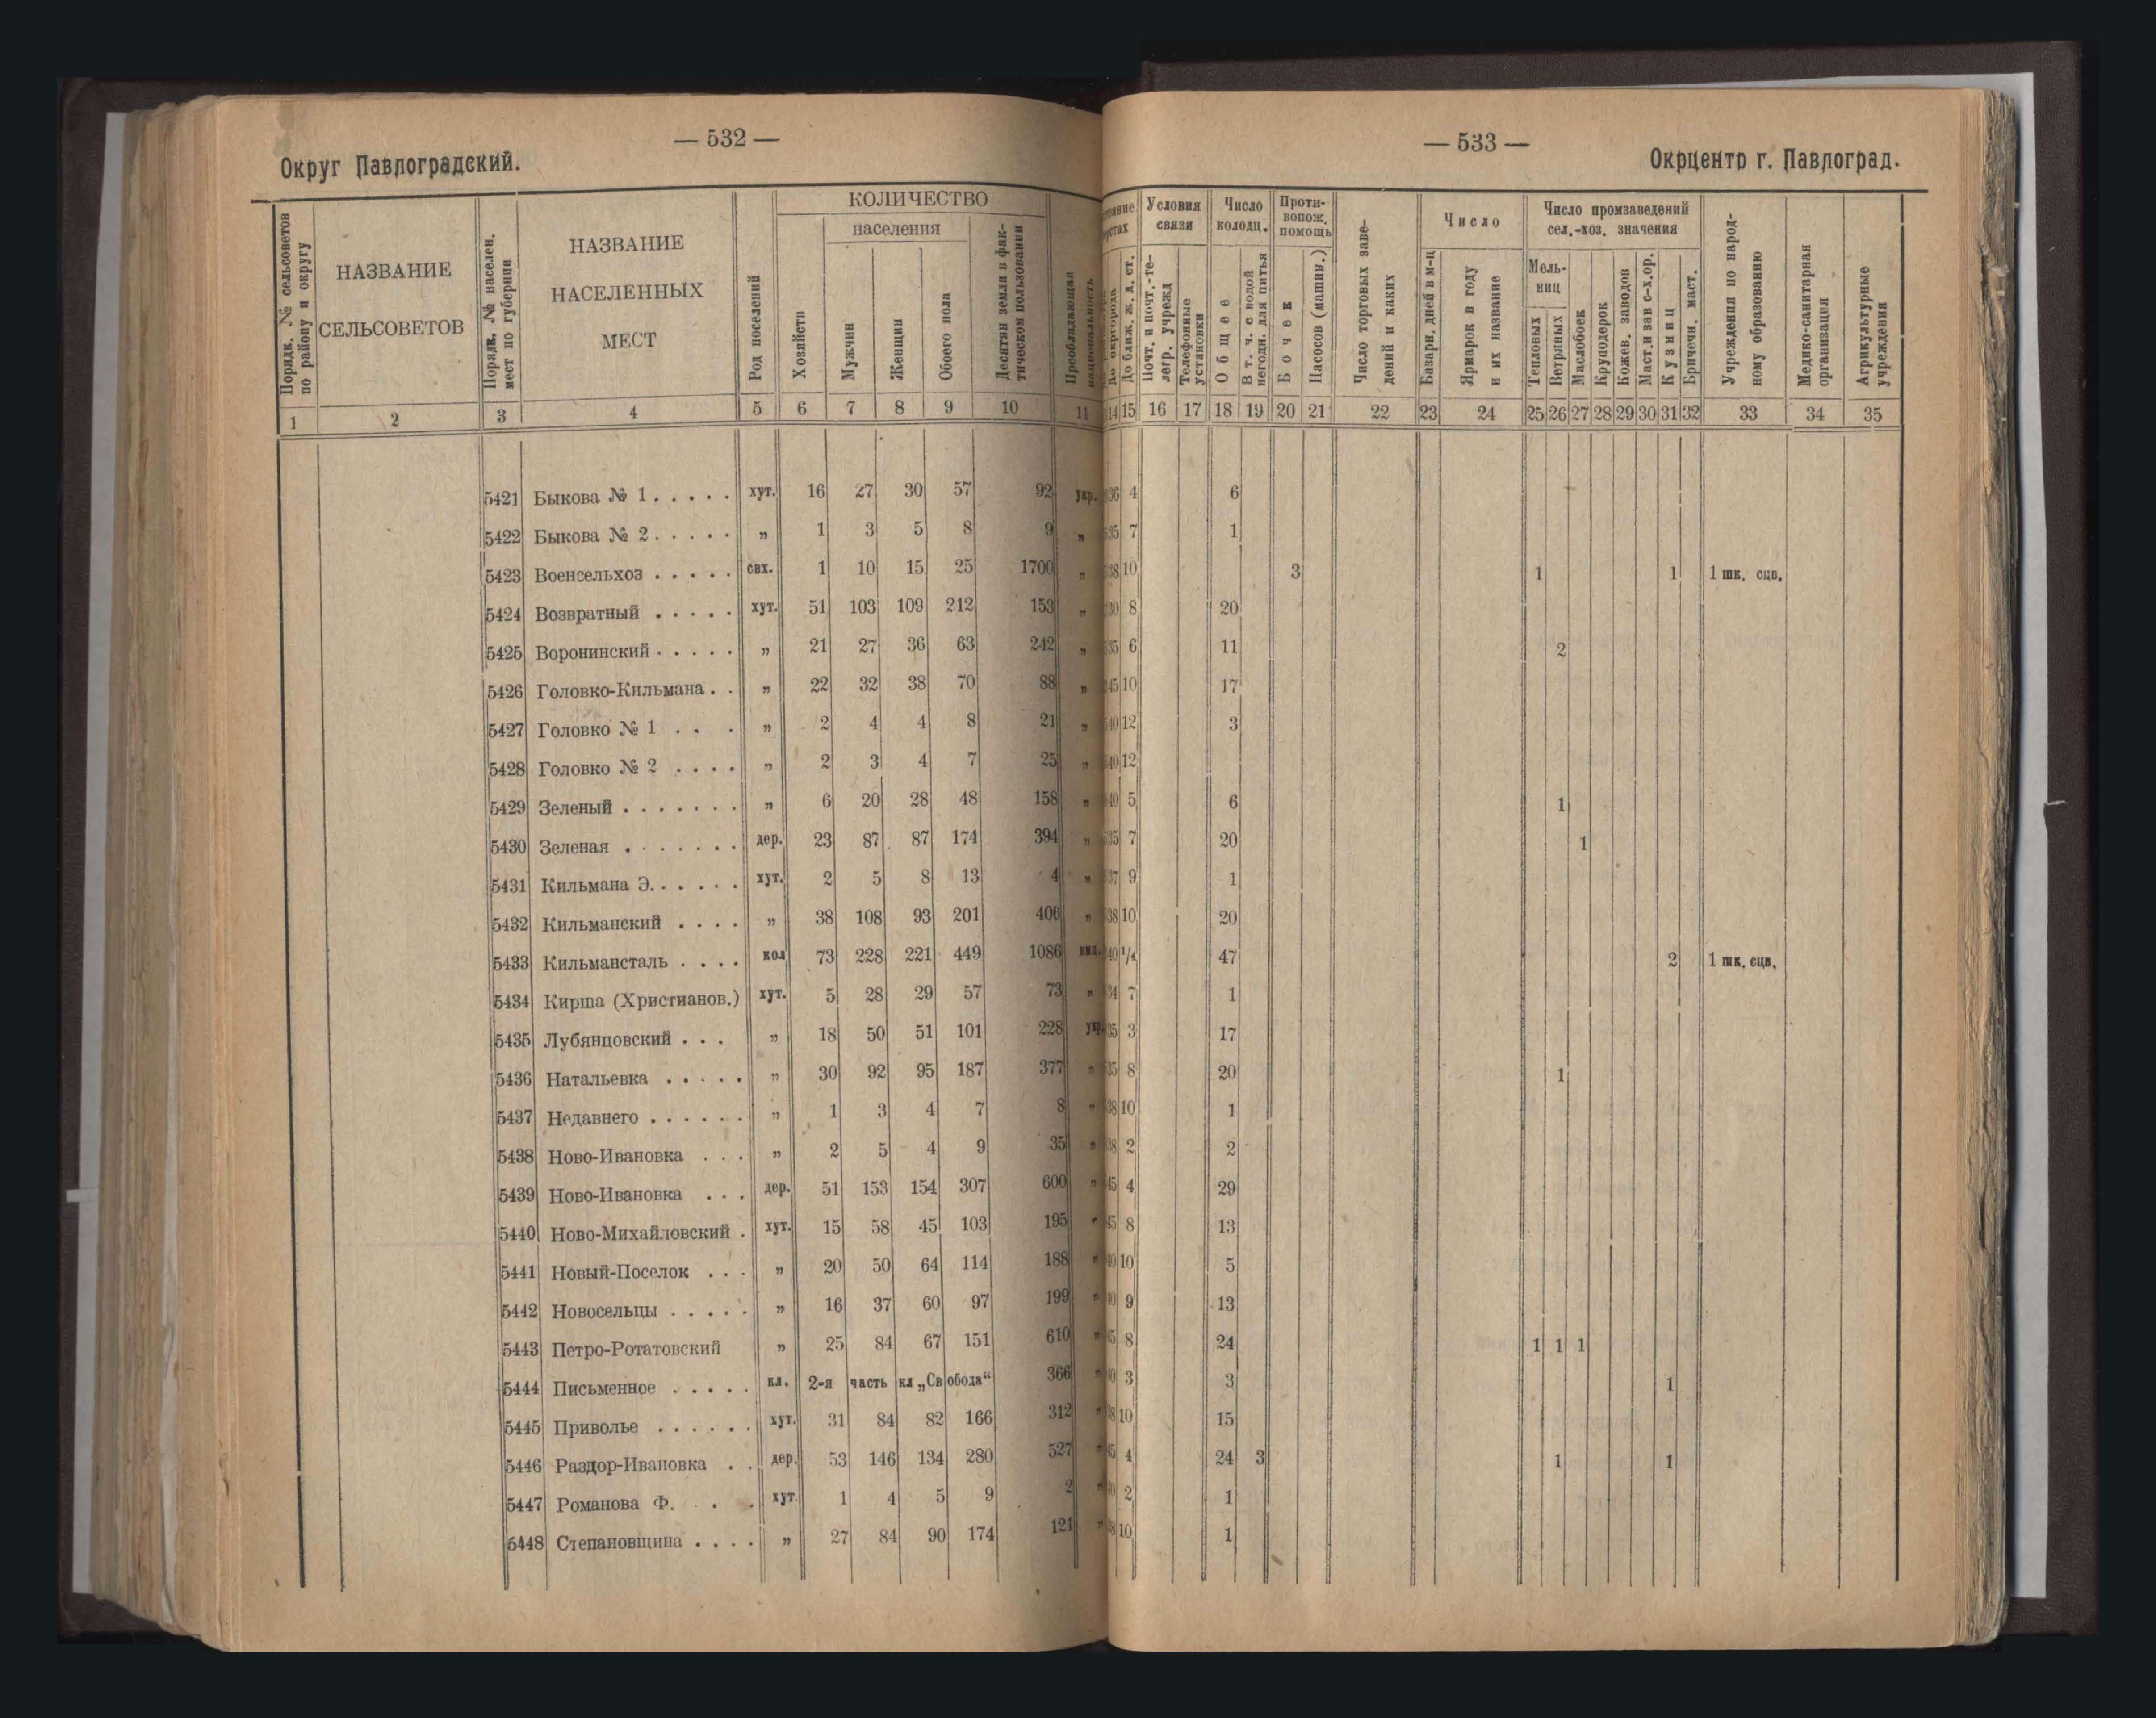 — 532 —
Округ Павлоградский.
Порядк. № сельсоветов по району и округу
НАЗВАНИЕ СЕЛЬСОВЕТОВ
Порядк. № населен. мест по губернии
НАЗВАНИЕ НАСЕЛЕННЫХ МЕСТ
Род поселений
КОЛИЧЕСТВО
населения
Хозяйств
Мужчин
Женщин
Обоего пола
Десятин земли в фактическом пользовании
Преобладающая национальность
1 2 3 4 5 6 7 8 9 10 11
5421 Быкова № 1 . . . . . хут. 16 27 30 57 92 укр.
5422 Быкова № 2 . . . . . „ 1 3 5 8 9 „
5423 Военсельхоз . . . . . свх. 1 10 15 25 1700 „
5424 Возвратный . . . . . хут. 51 103 109 212 153 „
5425 Воронинский . . . . . „ 21 27 36 63 242 „
5426 Головко-Кильмана . . „ 22 32 38 70 88 „
5427 Головко № 1 . . . „ 2 4 4 8 21 „
5428 Головко № 2 . . . . „ 2 3 4 7 25 „
5429 Зеленый . . . . . . . „ 6 20 28 48 158 „
5430 Зеленая . . . . . . . дер. 23 87 87 174 394 „
5431 Кильмана Э. . . . . . хут. 2 5 8 13 4 „
5432 Кильманский . . . . „ 38 108 93 201 406 „
5433 Кильмансталь . . . . кол 73 228 221 449 1086 нмц.
5434 Кирша (Христианов.) хут. 5 28 29 57 73 „
5435 Лубянцовский . . . „ 18 50 51 101 228 укр.
5436 Натальевка . . . . . „ 30 92 95 187 377 „
5437 Недавнего . . . . . . „ 1 3 4 7 8 „
5438 Ново-Ивановка . . . „ 2 5 4 9 35 „
5439 Ново-Ивановка . . . дер. 51 153 154 307 600 „
5440 Ново-Михайловский . хут. 15 58 45 103 195 „
5441 Новый-Поселок . . . „ 20 50 64 114 188 „
5442 Новосельцы . . . . . „ 16 37 60 97 199 „
5443 Петро-Ротатовский „ 25 84 67 151 610 „
5444 Письменное . . . . . кл. 2-я часть кл „Свобода“ 366 „
5445 Приволье . . . . . . хут. 31 84 82 166 312 „
5446 Раздор-Ивановка . . дер. 53 146 134 280 527 „
5447 Романова Ф. . . хут 1 4 5 9 2 „
5448 Степановщина . . . . „ 27 84 90 174 121 „
— 533 —
Окрцентр г. Павлоград.
До ближ. ж. д. ст.
Условия связи
Почт. и почт.-телегр. учрежд
Телефонные установки
Число колодц.
Общее
В т. ч. с водой негодн. для питья
Противопож. помощь
Бочек
Насосов (машин.)
Число торговых заведений и каких
Число
Базарн. дней в м-ц
Ярмарок в году и их название
Число промзаведений сел.-хоз. значения
Мельниц
Тепловых
Ветряных
Маслобоек
Круподерок
Кожев. заводов
Маст. и зав с-х. ор.
Кузниц
Бричечн. маст.
Учреждения по народному образованию
Медико-санитарная организация
Агрикультурные учреждения
14 15 16 17 18 19 20 21 22 23 24 25 26 27 28 29 30 31 32 33 34 35
4 6
7 1
10 3 1 1 1 шк. сцв.
8 20
6 11 2
10 17
12 3
12
5 6 1
7 20 1
9 1
10 20
1/4 47 2 1 шк. сцв.
7 1
3 17
8 20 1
10 1
2 2
4 29
8 13
10 5
9 13
8 24 1 1 1
3 3 1
10 15
4 24 3 1 1
2 1
10 1